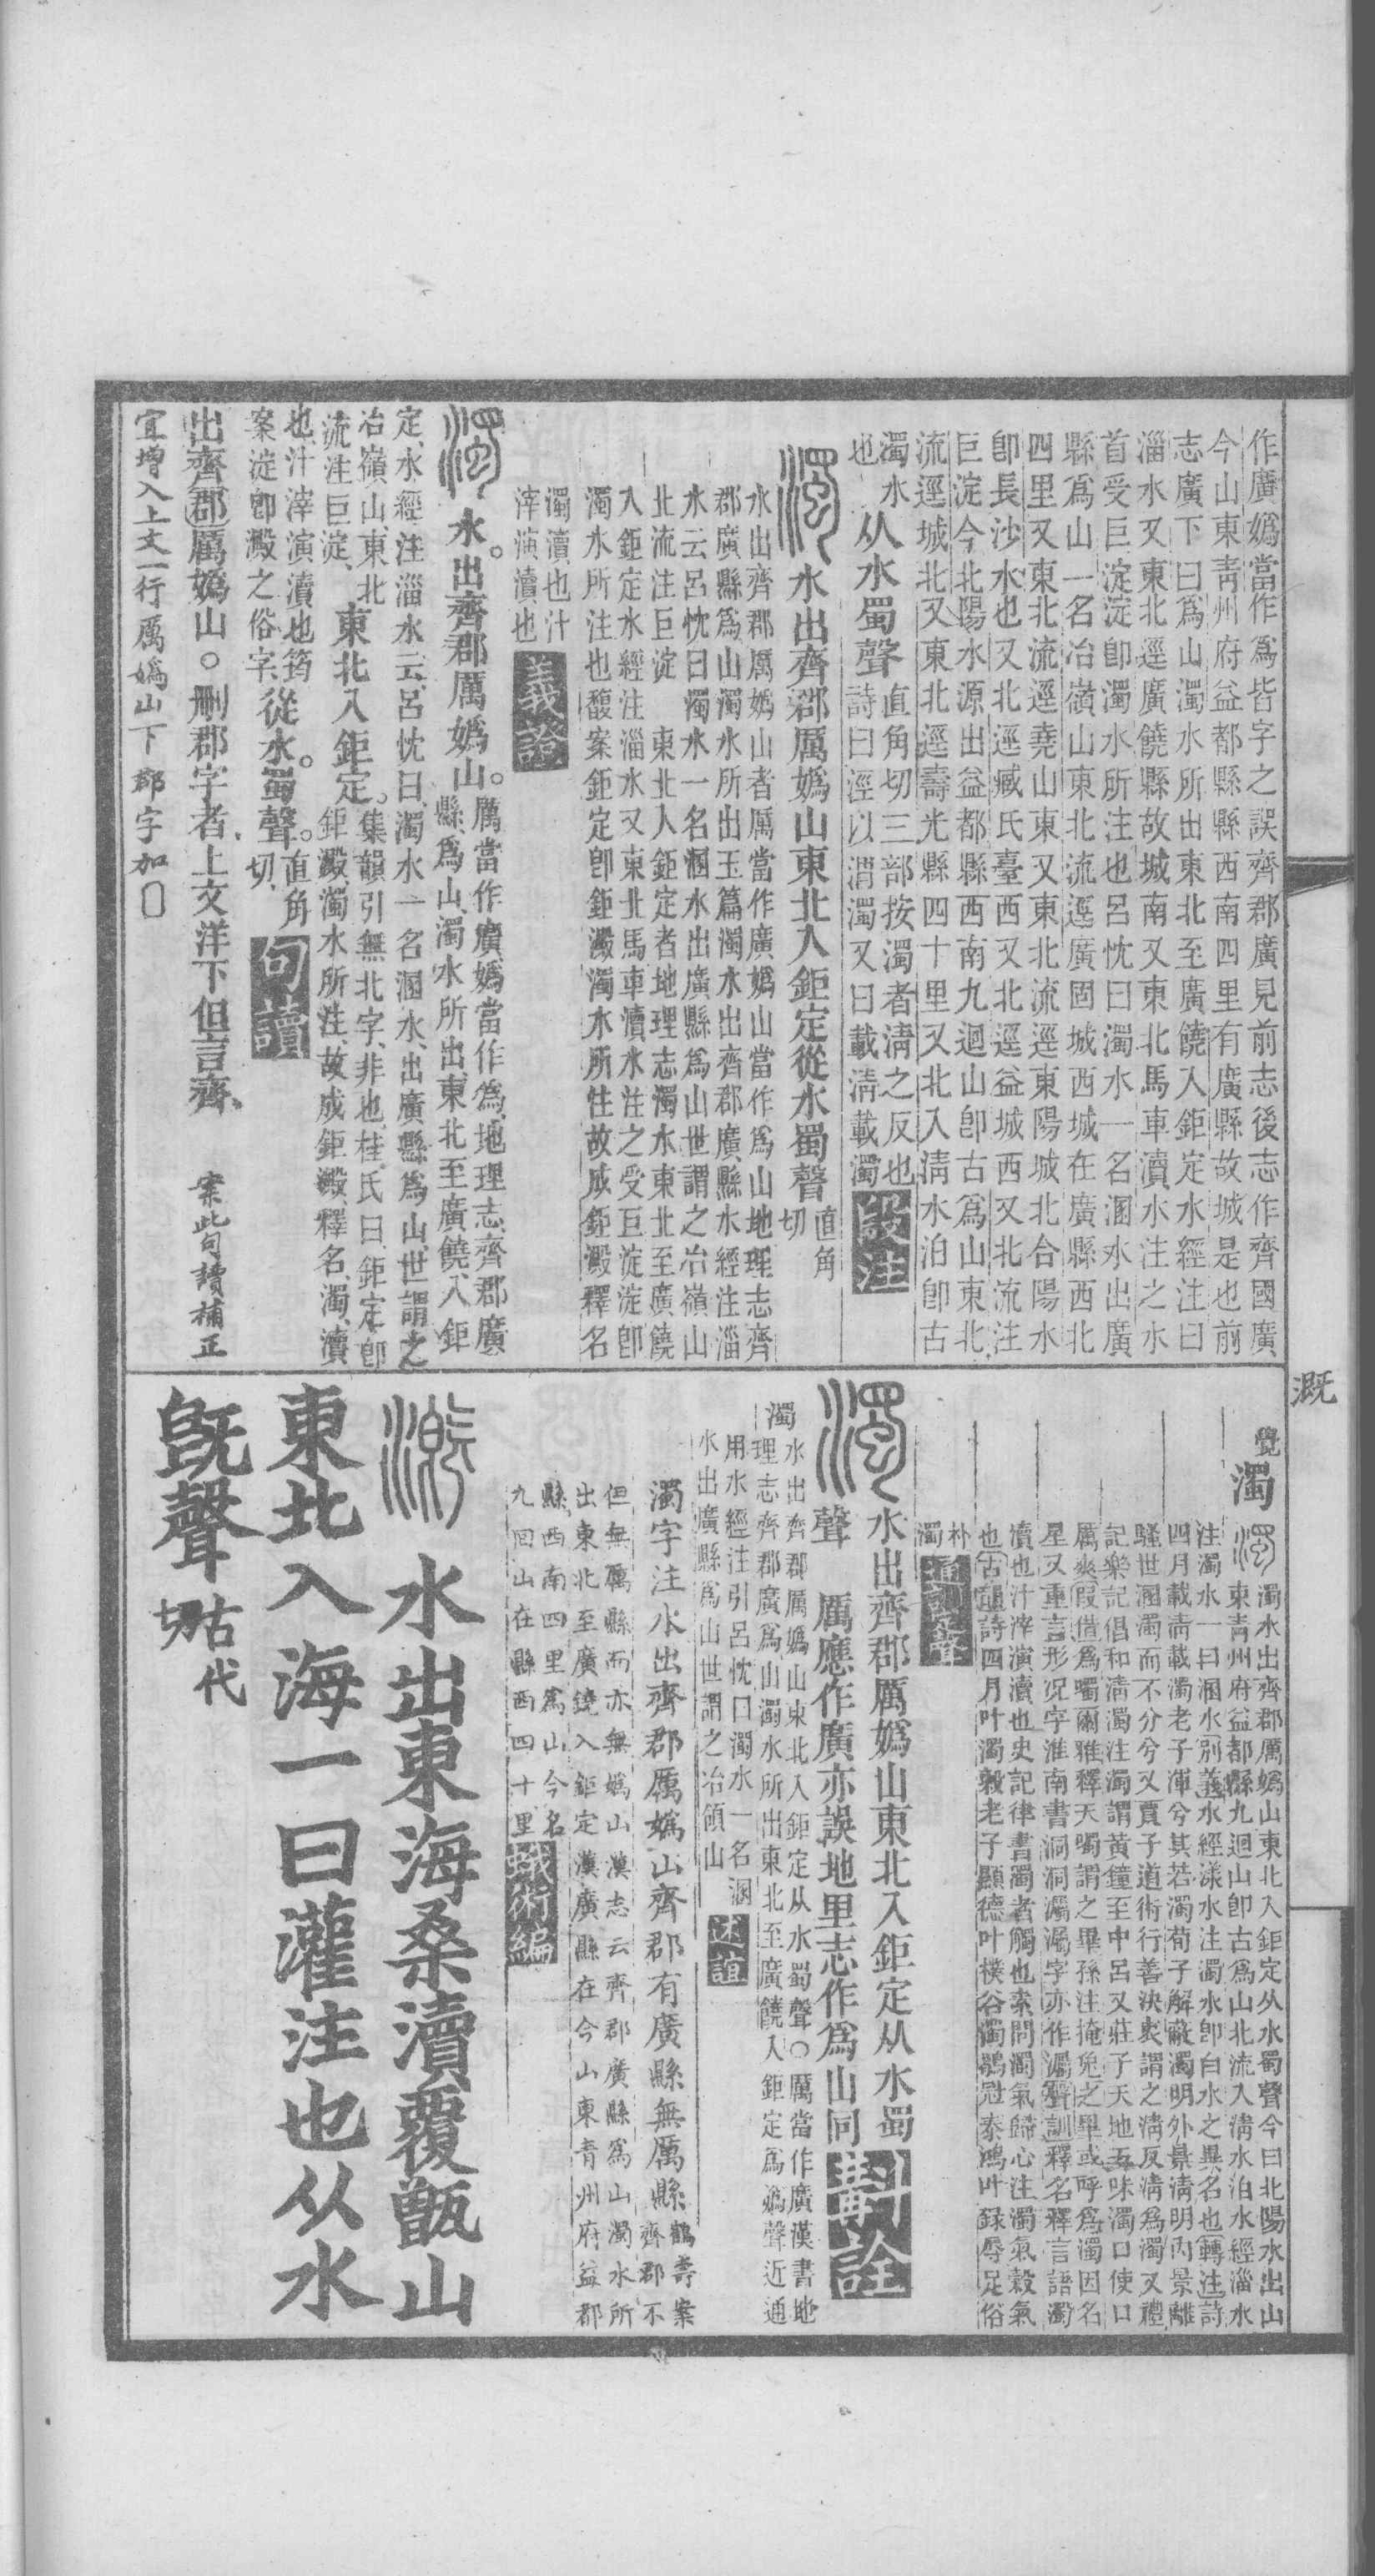 作廣嬀當作爲皆字之誤齊郡廣見前志後志作齊國廣
今山東靑州府益都縣縣西南四里有廣縣故城是也前
志廣下曰爲山濁水所出東北至廣饒入鉅定水經注曰
淄水又東北逕廣饒縣故城南又東北馬車瀆水注之水
首受巨淀淀卽濁水所注也呂忱曰濁水一名溷水出廣
縣爲山一名冶嶺山東北流逕廣固城西城在廣縣西北
四里又東北流逕堯山東又東北流逕東陽城北合陽水
卽長沙水也又北逕臧氏臺西又北逕益城西又北流注
巨淀今北陽水源出益都縣西南九迴山卽古爲山東北
流逕城北又東北逕壽光縣四十里又北入淸水泊卽古
濁水也 从水蜀聲 直角切三部按濁者淸之反也詩曰涇以渭濁又曰載淸載濁 段注
水出齊郡厲嬀山東北入鉅定從水蜀聲 直角切
水出齊郡厲嬀山者厲當作廣嬀山當作爲山地理志齊
郡廣縣爲山濁水所出玉篇濁水出齊郡廣縣水經注淄
水云呂忱曰濁水一名溷水出廣縣爲山世謂之冶嶺山
北流注巨淀 東北入鉅定者地理志濁水東北至廣饒
入鉅定水經注淄水又東北馬車瀆水注之受巨淀淀卽
濁水所注也馥案鉅定卽鉅澱濁水所注故成鉅澱釋名
濁瀆也汁
滓演瀆也 義證
水。出齊郡厲嬀山。厲當作廣嬀當作爲、地理志、齊郡廣縣爲山、濁水所出、東北至廣饒、入鉅
定、水經注淄水云、呂忱曰、濁水一名溷水、出廣縣爲山、世謂之
冶嶺山、東北流注巨淀、 東北入鉅定。集韻引無北字、非也、桂氏曰、鉅定卽鉅澱、濁水所注、故成鉅澱、釋名、濁、瀆
也、汁滓演瀆也、筠案淀卽澱之俗字、 從水。蜀聲。直角切、 句讀
出齊郡厲嬀山。○刪郡字者、上文洋下但言齊、 案此句讀補正
宜增入上文一行厲嬀山下郡字加□
溉
覺
濁 濁水出齊郡厲嬀山東北入鉅定从水蜀聲今曰北陽水出山
東靑州府益都縣九迴山卽古爲山北流入淸水泊水經淄水
注濁水一曰溷水別義水經漾水注濁水卽白水之異名也轉注詩
四月載淸載濁老子渾兮其若濁荀子解蔽濁明外景淸明內景離
騷世溷濁而不分兮又賈子道術行善決衷謂之淸反淸爲濁又禮
記樂記倡和淸濁注濁謂黃鐘至中呂又莊子天地五味濁口使口
厲爽叚借爲噣爾雅釋天噣謂之畢孫注掩兔之畢或呼爲濁因名
星又重言形況字淮南書洞洞灟灟字亦作灟聲訓釋名釋言語濁
瀆也汁滓演瀆也史記律書濁者觸也素問濁氣歸心注濁氣穀氣
也古韻詩四月叶濁穀老子顯德叶樸谷濁鶡冠泰鴻叶錄辱足俗
朴濁 通訓定聲
水出齊郡厲嬀山東北入鉅定从水蜀
聲 厲應作廣亦誤地里志作爲山同 斠詮
濁 濁水出齊郡厲嬀山東北入鉅定从水蜀聲○厲當作廣漢書地
理志齊郡廣爲山濁水所出東北至廣饒入鉅定爲嬀聲近通
用水經注引呂忱曰濁水一名溷
水出廣縣爲山世謂之冶領山 述誼
濁字注水出齊郡厲嬀山齊郡有廣縣無厲縣 鶴壽案齊郡不
但無厲縣而亦無嬀山漢志云齊郡廣縣爲山濁水所
出東北至廣饒入鉅定漢廣縣在今山東青州府益都
縣西南四里爲山今名
九回山在縣西四十里 蛾術編
水出東海桑瀆覆甑山
東北入海一曰灌注也从水
旣聲 古代切